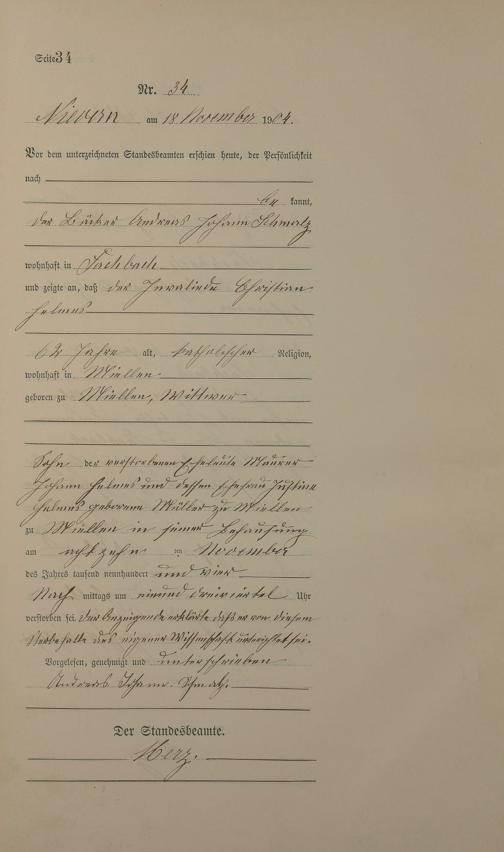 Seite 34
Nr. 34
Nievern am 18 November 1904.
Vor dem unterzeichneten Standesbeamten erschien heute, der Persönlichkeit
nach
be kannt,
der Bäcker Andreas Johann Schmalz
wohnhaft in Fachbach
und zeigte an, daß der Invaliede Christian
Helmes
62 Jahre alt, katholischer Religion,
wohnhaft in Miellen
geboren zu Miellen, Wittwer
Sohn der verstorbenen Eheleute Maurer
Johann Helmes und dessen Ehefrau Justine
Helmes geborene Müller zu Miellen
zu Miellen in seiner Behausung
am achtzehn ten November
des Jahres tausend neunhundert und vier
Nach mittags um ein und dreiviertel Uhr
verstorben sei. Der Anzeigende erklärte daß er von diesem
Sterbefalle aus eigener Wissenschaft unterrichtet sei.
Vorgelesen, genehmigt und unterschrieben
Andreas Johann Schmalz
Der Standesbeamte.
Merz.